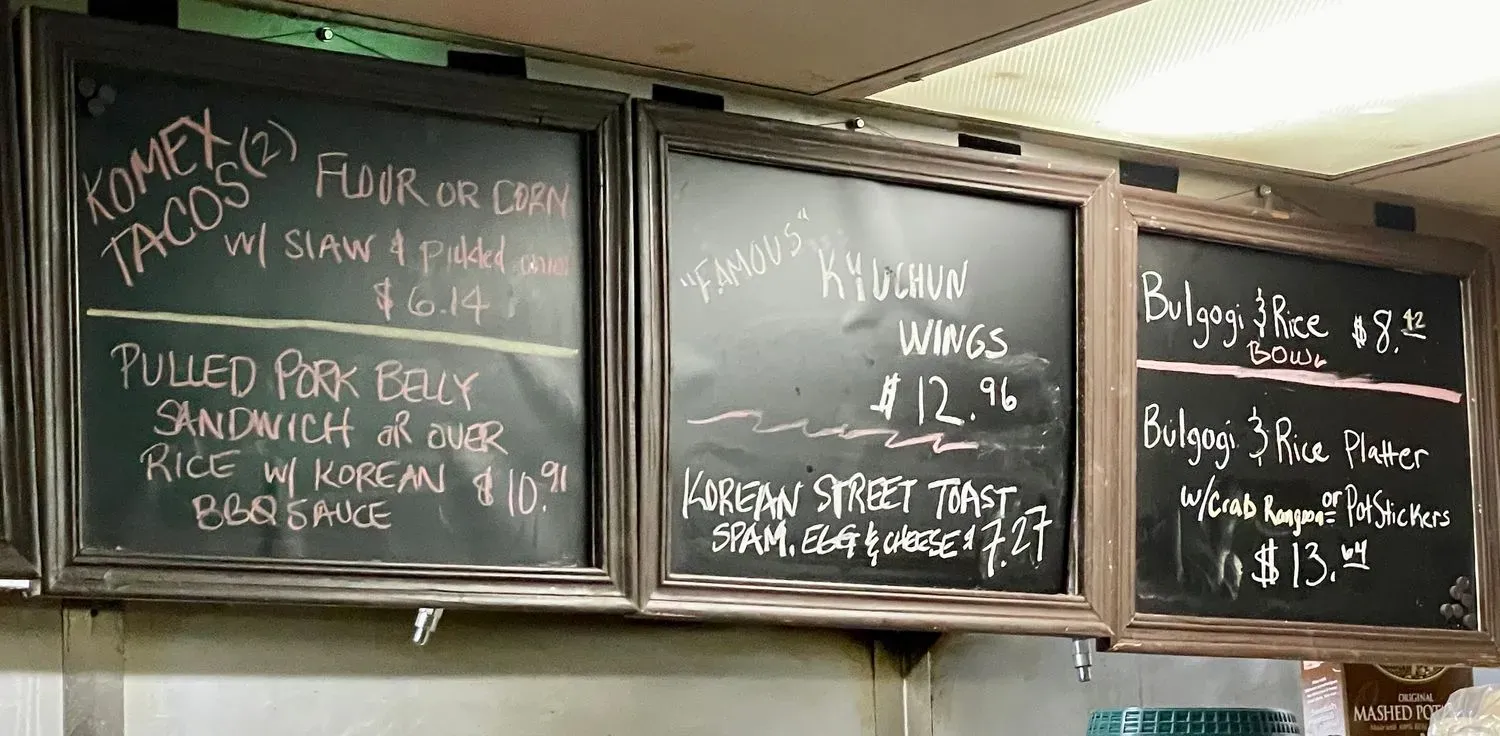 KOMEX
TACOS (2)
FLOUR OR CORN
W/ SLAW & pickled onion
$6.14
PULLED PORK BELLY
SANDWICH OR OVER
RICE W/ KOREAN $10.91
BBQ SAUCE
"FAMOUS" KYUCHUN
WINGS
$12.96
KOREAN STREET TOAST
SPAM, EGG & CHEESE $7.27
Bulgogi & Rice $8.42
BOWL
Bulgogi & Rice Platter
w/Crab Rangoon or PotStickers
$13.64
ORIGINAL
MASHED